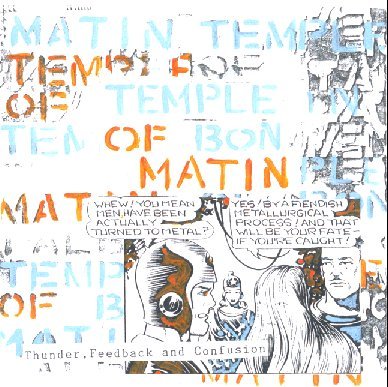 MATIN TEMPLE
TEMPLE
OF TEMPLE IN
TEM OF BON
MATIN PLE
MAT BON
WHEW! YOU MEAN
MEN HAVE BEEN
ACTUALLY
TURNED TO METAL?
YES! BY A FIENDISH
METALLURGICAL
PROCESS! AND THAT
WILL BE YOUR FATE—
IF YOU'RE CAUGHT!
TEMP
OF B
MAT
Thunder, Feedback and Confusion
MATIN